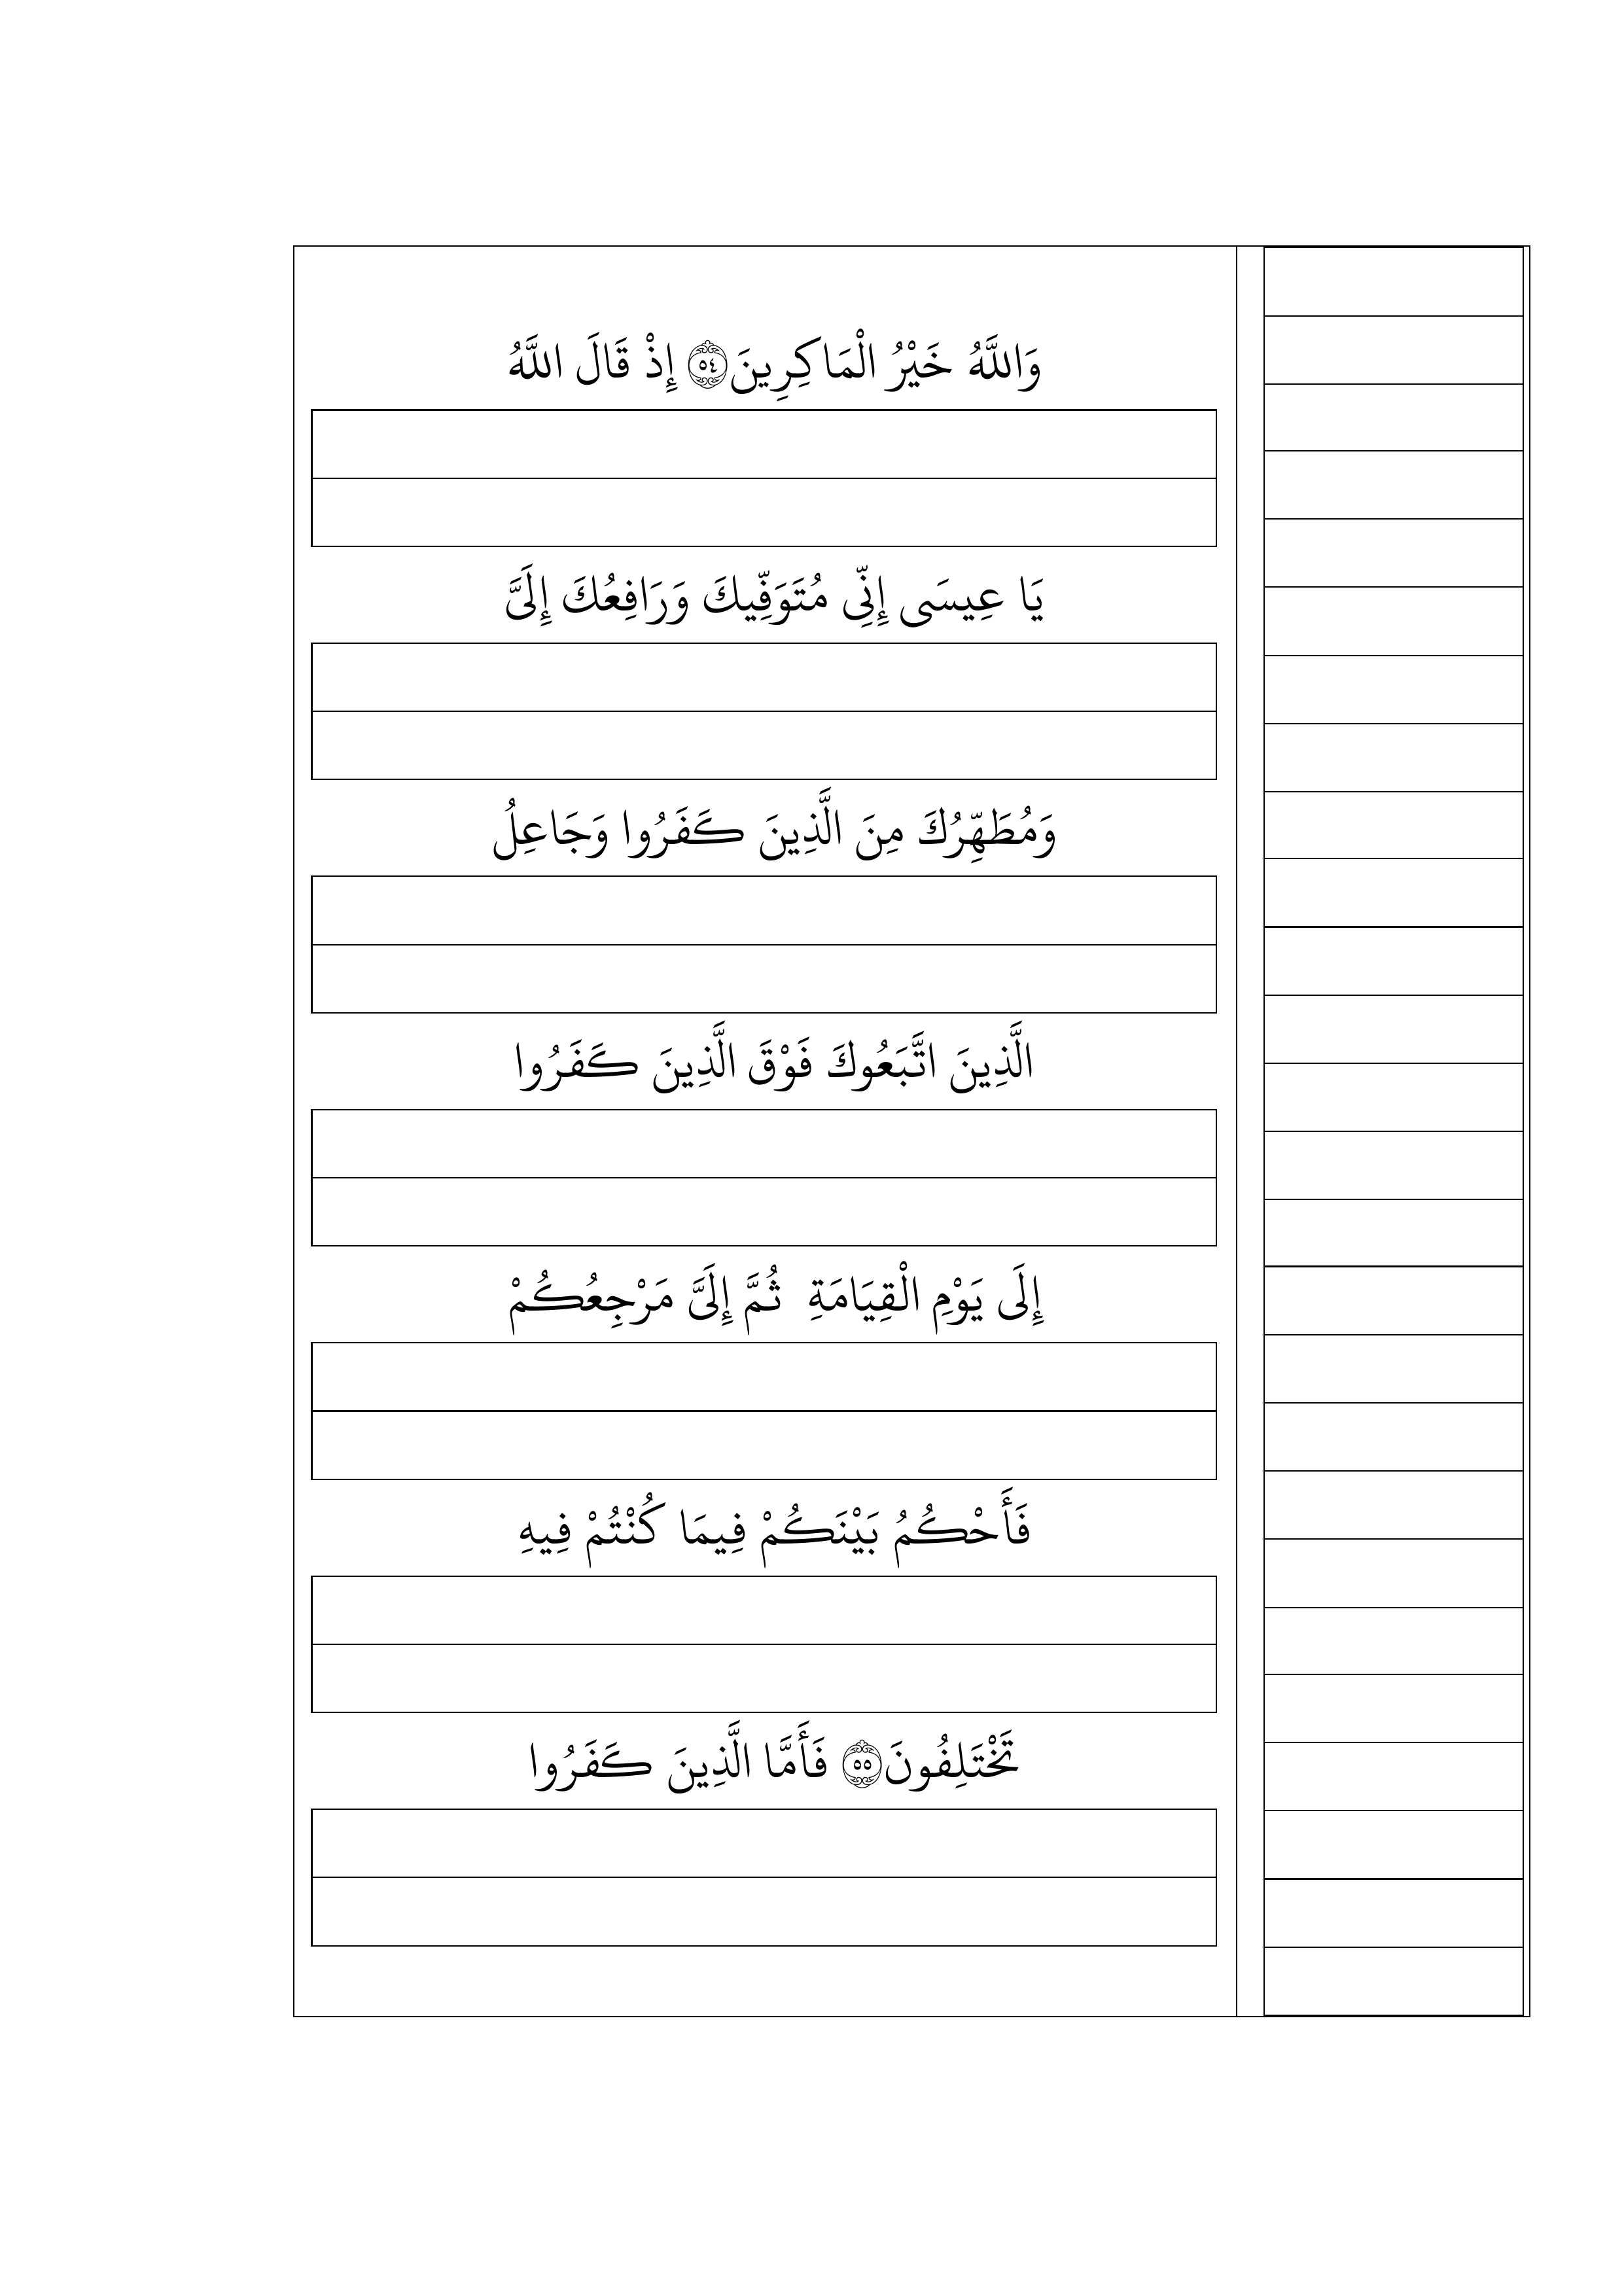 وَاللَّهُ خَيْرُ الْمَاكِرِينَ ﴿٥٤﴾ إِذْ قَالَ اللَّهُ
يَا عِيسَى إِنِّي مُتَوَفِّيكَ وَرَافِعُكَ إِلَيَّ
وَمُطَهِّرُكَ مِنَ الَّذِينَ كَفَرُوا وَجَاعِلُ
الَّذِينَ اتَّبَعُوكَ فَوْقَ الَّذِينَ كَفَرُوا
إِلَى يَوْمِ الْقِيَامَةِ ثُمَّ إِلَيَّ مَرْجِعُكُمْ
فَأَحْكُمُ بَيْنَكُمْ فِيمَا كُنْتُمْ فِيهِ
تَخْتَلِفُونَ ﴿٥٥﴾ فَأَمَّا الَّذِينَ كَفَرُوا